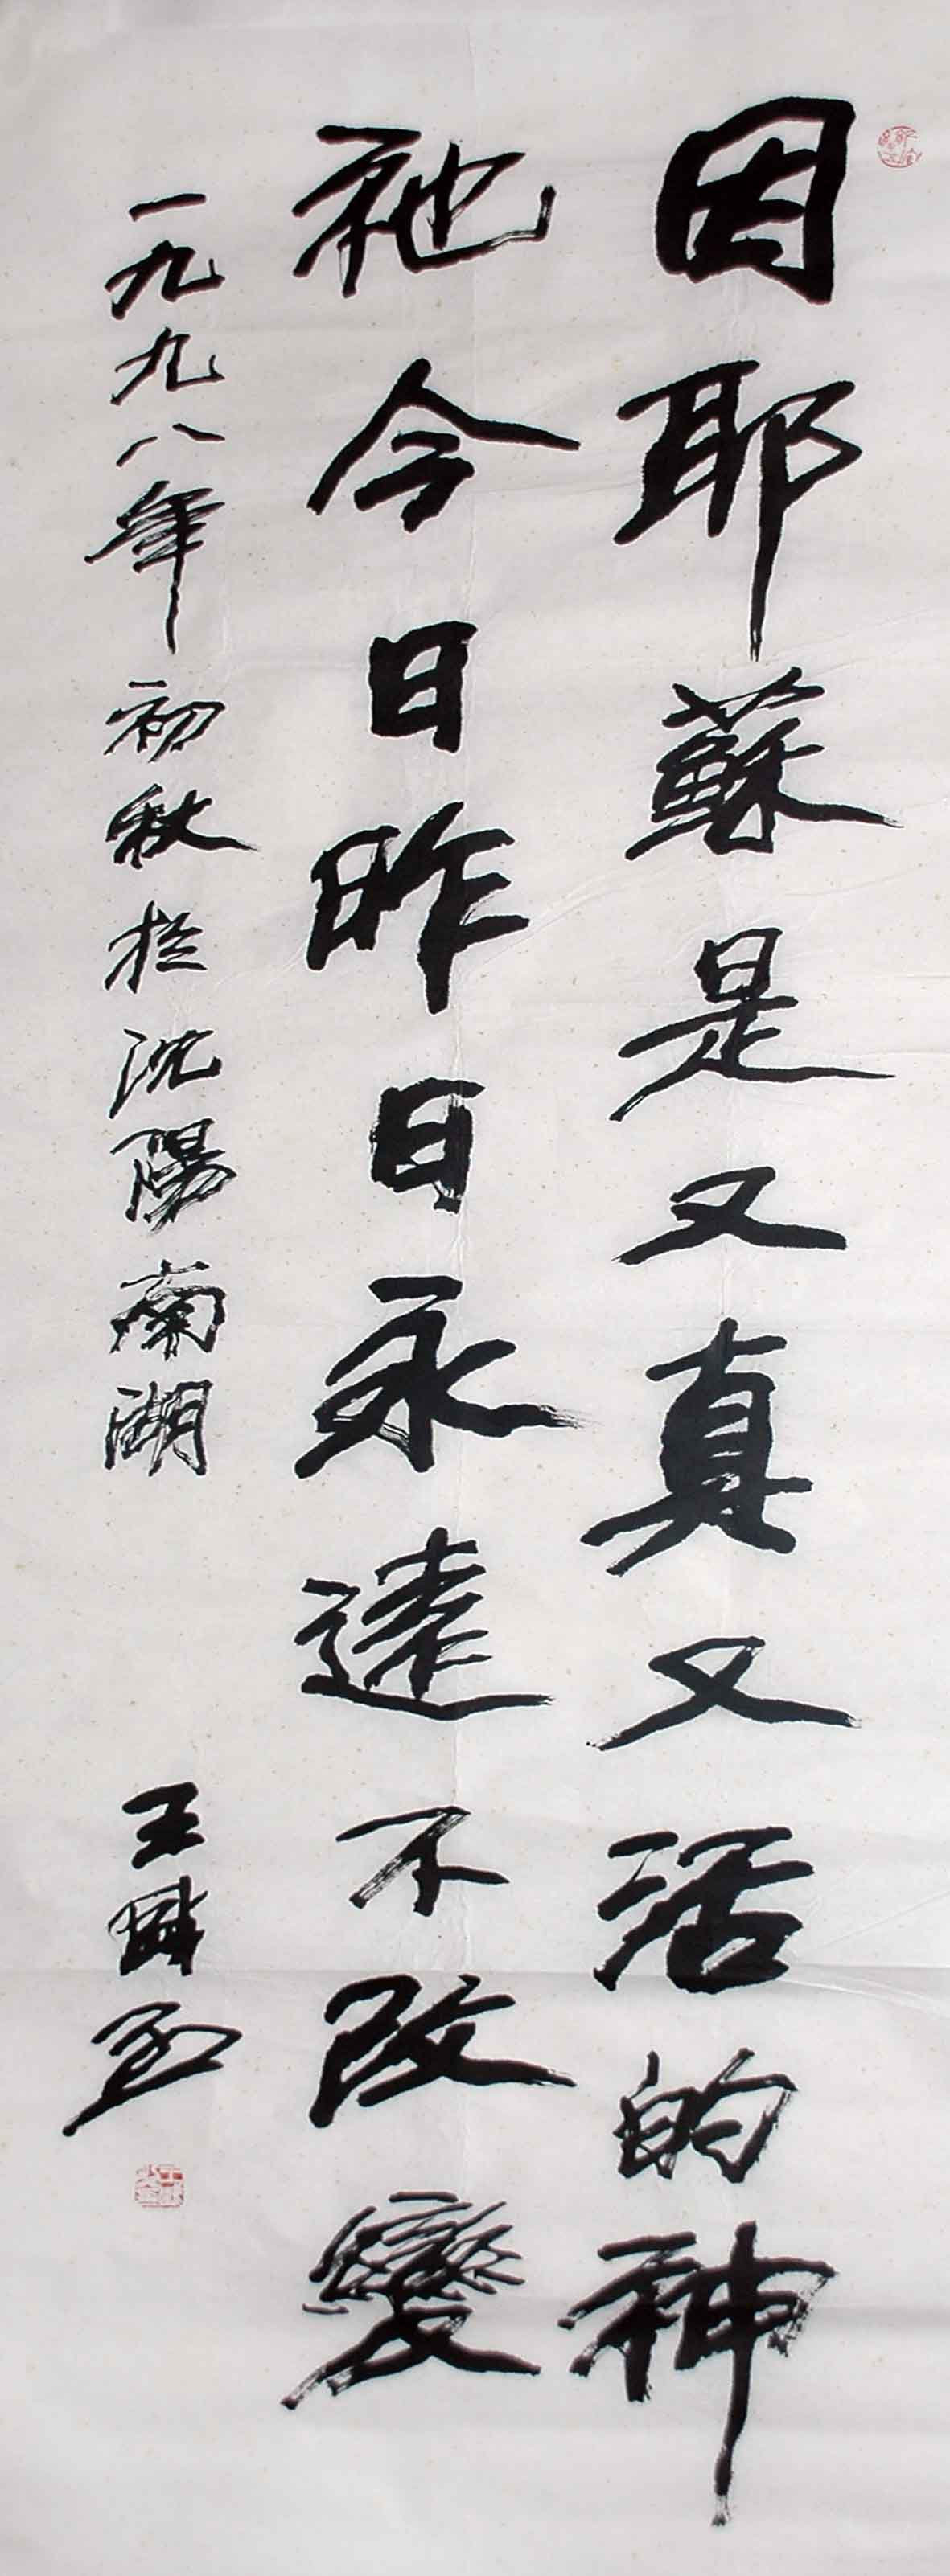 因耶蘇是又真又活的神
祂今日昨日永遠不改變
一九九八年初秋於沈陽南湖
王